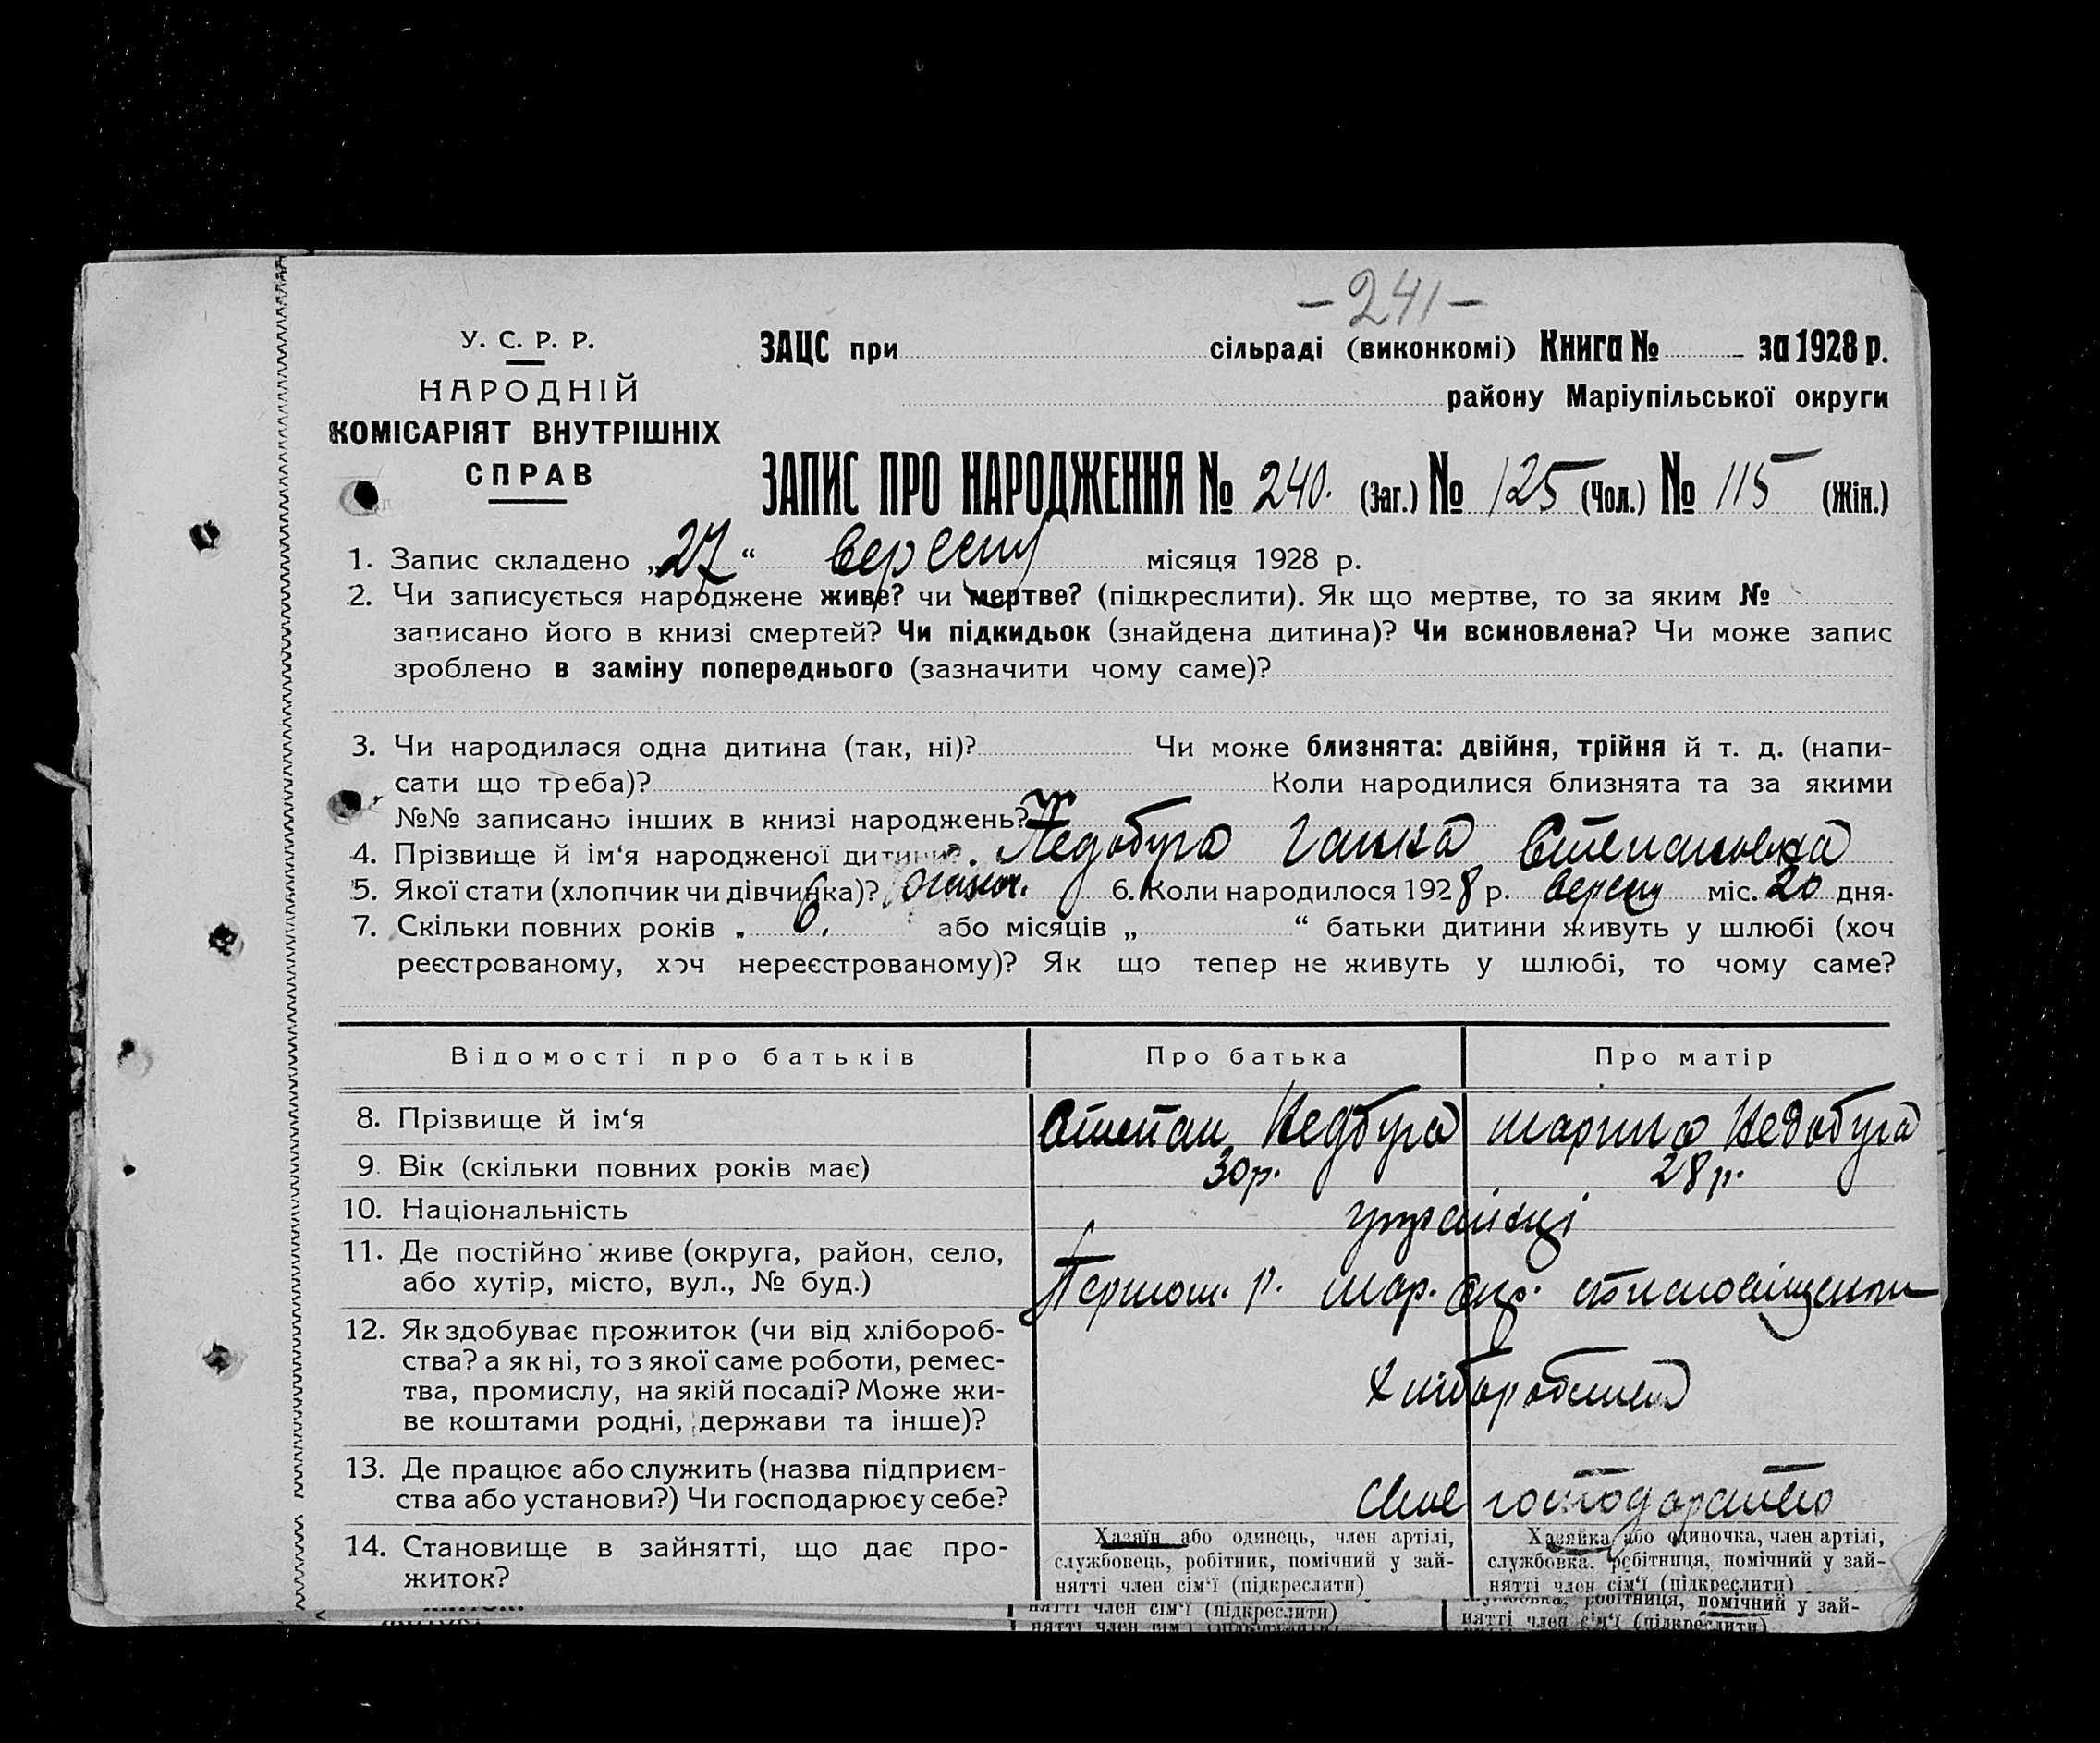 -241-
У. С. Р. Р.
НАРОДНІЙ
КОМІСАРІЯТ ВНУТРІШНІХ
СПРАВ
ЗАЦС при сільраді (виконкомі) Книга № за 1928 р.
району Маріупільської округи
ЗАПИС ПРО НАРОДЖЕННЯ № 240. (Заг.) № 125 (Чол.) № 115 (Жін.)
1. Запис складено „27“ вересня місяця 1928 р.
2. Чи записується народжене живе? чи мертве? (підкреслити). Як що мертве, то за яким №
записано його в книзі смертей? Чи підкидьок (знайдена дитина)? Чи всиновлена? Чи може запис
зроблено в заміну попереднього (зазначити чому саме)?
3. Чи народилася одна дитина (так, ні)? Чи може близнята: двійня, трійня й т. д. (напи-
сати що треба)? Коли народилися близнята та за якими
№№ записано інших в книзі народжень?
4. Прізвище й ім‘я народженої дитини? Недобуга Ганна Степановна
5. Якої стати (хлопчик чи дівчинка)? 6. Коли народилося 1928 р. вересня міс. 20 дня.
7. Скільки повних років „ 6. або місяців „ “ батьки дитини живуть у шлюбі (хоч
реєстрованому, хоч нереєстрованому)? Як що тепер не живуть у шлюбі, то чому саме?
Відомості про батьків Про батька Про матір
8. Прізвище й ім‘я Степан Недбуга Марина Недобуга
9. Вік (скільки повних років має) 30р. 28р.
10. Національність українці
11. Де постійно живе (округа, район, село,
або хутір, місто, вул., № буд.) р. Мар. окр.
12. Як здобуває прожиток (чи від хлібороб-
ства? а як ні, то з якої саме роботи, ремес-
тва, промислу, на якій посаді? Може жи-
ве коштами родні, держави та інше)?
13. Де працює або служить (назва підприєм-
ства або установи?) Чи господарює у себе? своє господарство
14. Становище в зайнятті, що дає про-
житок?
Хазяїн або одинець, член артілі,
службовець, робітник, помічний у зай-
нятті член сім‘ї (підкреслити)
Хазяйка або одиночка, член артілі,
службовка, робітниця, помічний у зай-
нятті член сім‘ї (підкреслити)
нятті член сім‘ї (підкреслити)
службовка, робітниця, помічний у зай-
нятті член сім‘ї (підкреслити)